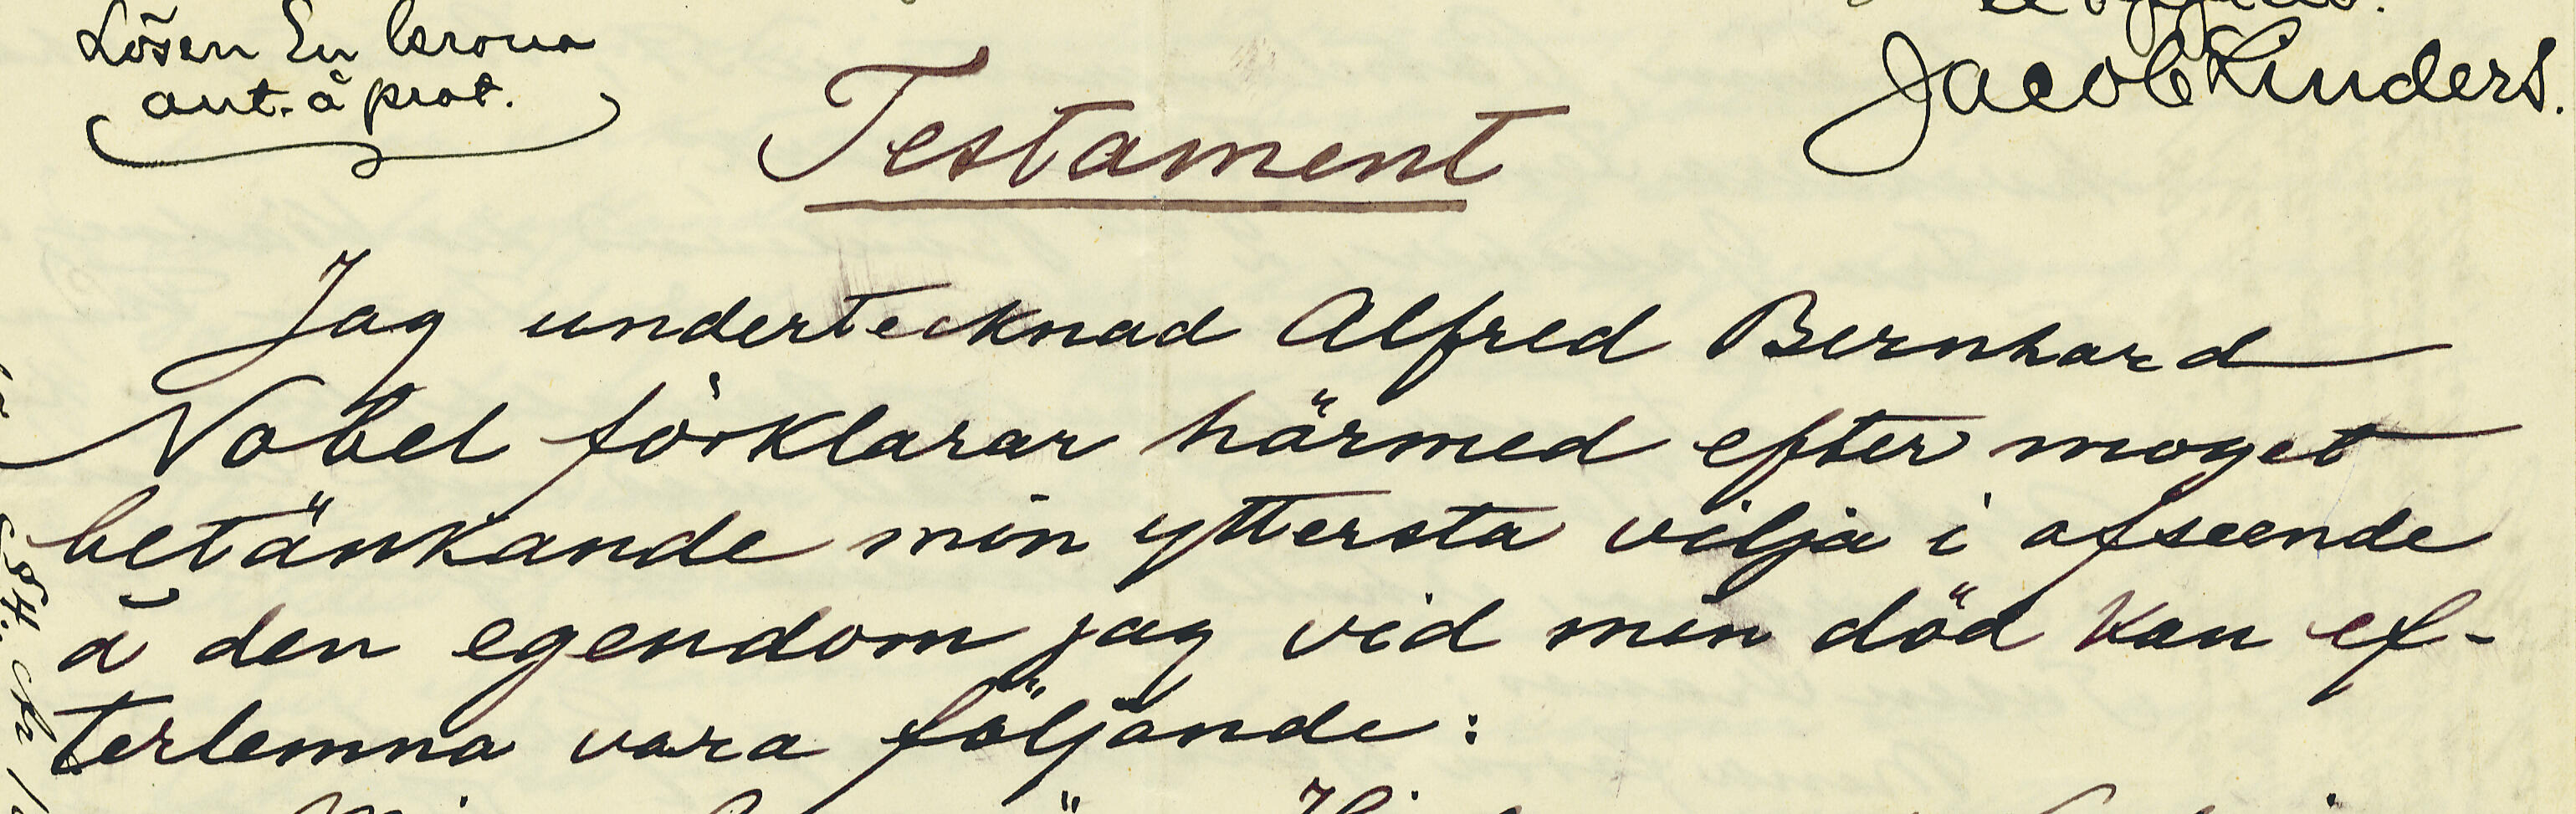 Lösen En krona
ant. å prot.
Jacob Linders.
Testament
Jag undertecknad Alfred Bernhard
Nobel förklarar härmed efter moget
betänkande min yttersta vilja i afseende
å den egendom jag vid min död kan ef-
terlemna vara följande: